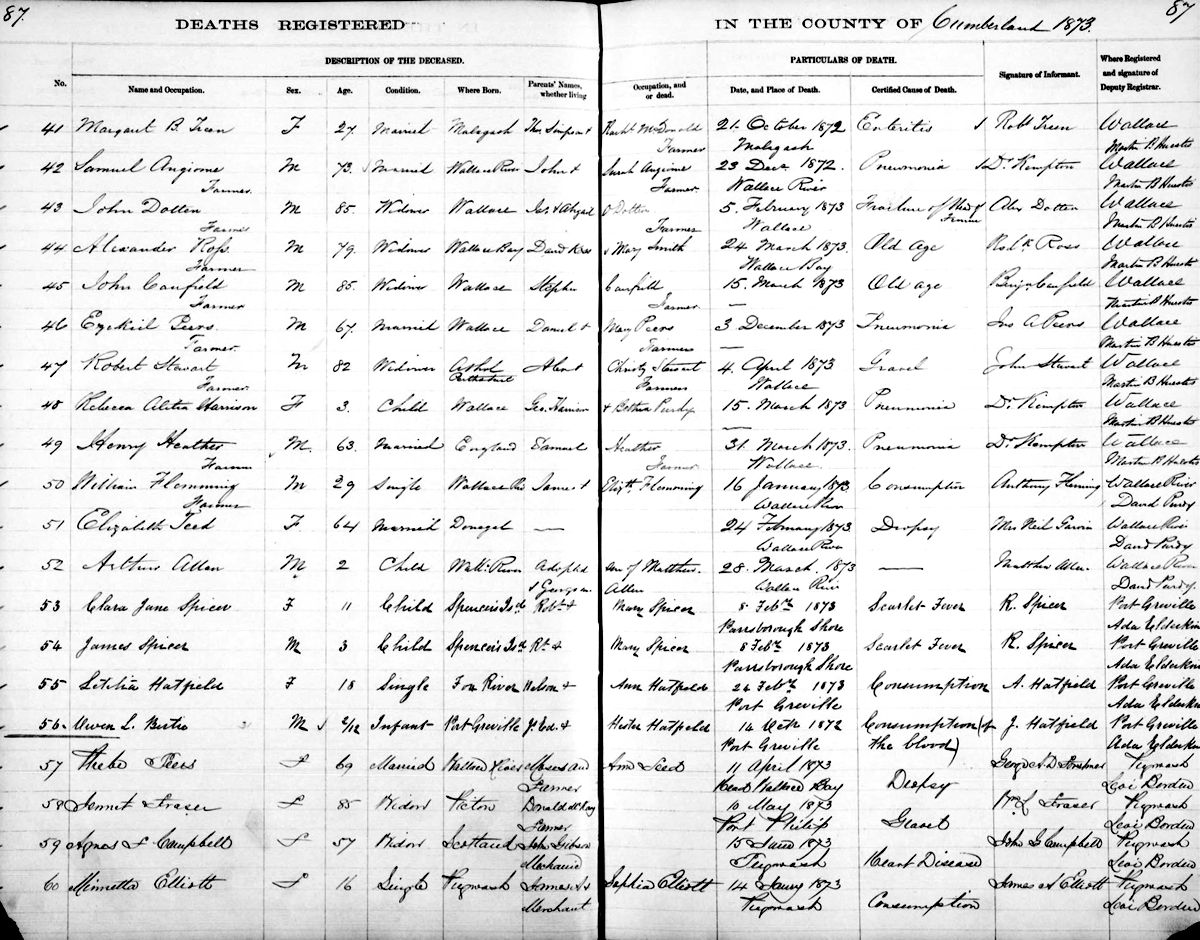 87.
87
DEATHS REGISTERED
IN THE COUNTY OF Cumberland 1873.
DESCRIPTION OF THE DECEASED.
PARTICULARS OF DEATH.
No.
Name and Occupation.
Sex.
Age.
Condition.
Where Born.
Parents' Names, whether living
Occupation, and or dead.
Date, and Place of Death.
Certified Cause of Death.
Signature of Informant.
Where Registered and signature of Deputy Registrar.
41 Margaret B. Treen F 27 Married Malagash Thos Simpson + Rachl McDonald 21. October 1872 Enteritis Robt Treen Wallace
Farmer Malagash Martin B Huestis
42 Samuel Angione M 73. Married Wallace River John + Sarah Angione 23 Dec 1872. Pneumonia Dr Kempton Wallace
Farmer. Farmer Wallace River Martin B Huestis
43 John Dotten M 85. Widower Wallace Jas. + Abigail Dotten 5. February 1873 Alex Dotten Wallace
Farmer Farmer Wallace Martin B Huestis
44 Alexander Ross M 79. Widower Wallace Bay David Ross + Mary Smith 24. March 1873. Old Age Robt Ross Wallace
Farmer Wallace Bay Martin B Huestis
45 John Canfield M 85. Widower Wallace Stephen Canfield 15. March 1873 Old Age Benjn Canfield Wallace
Farmer Farmer — Martin B Huestis
46 Ezekiel Peers M 67. Married Wallace Daniel + Mary Peers 3 December 1873 Pneumonia Jno A Peers Wallace
Farmer. Farmer — Martin B Huestis
47 Robert Stewart M 82 Widower Athol Christy Stewart 4. April 1873 Gravel John Stewart Wallace
Farmer Perthshire Farmer Wallace Martin B Huestis
48 Rebecca Alitia Harrison F 3. Child Wallace Geo. Harrison + Bethia Purdy 15. March 1873 Pneumonia Dr. Kempton Wallace
— Martin B Huestis
49 Henry Heather M. 63. Married England Samuel Heather 31. March 1873. Pneumonia Dr Kempton Wallace
Farmer Farmer Wallace. Martin B Huestis
50 William Flemming M 29 Single Wallace Riv James + Elizth. Flemming 16 January 1873 Consumption Anthony Fleming Wallace River
Farmer Wallace River David Purdy
51 Elizabeth Teed F 64 Married Donegal — 24 February 1873 Dropsy Mrs Neil Wallace River
Wallace River David Purdy
52 Arthur Allan M 2 Child Wall. River Adopted son of Matthew. 28. March. 1873 — Matthew Allan Wallace River
Allan Wallace River David Purdy
53 Clara Jane Spicer F 11 Child Spencer's Isd Robt. + Mary Spicer 8 Feb. 1873 Scarlet Fever R. Spicer Port Greville
Parrsborough Shore Ada Elderkin
54 James Spicer M 3 Child Spencer's Isd Rt. + Mary Spicer 8 Feb. 1873 Scarlet Fever R. Spicer Port Greville
Parrsborough Shore Ada Elderkin
55 Letitia Hatfield F 18 Single Fox River Nelson + Ann Hatfield 24 Feb. 1873 Consumption A. Hatfield Port Greville
Port Greville Ada Elderkin
56 Owen L. M 2/12 Infant Port Greville Jas. Ed. + Hester Hatfield 14 Octr 1872 Consumption (of J. Hatfield Port Greville
Port Greville the blood) Ada Elderkin
57 Phebe Peers F 69 Married Wallace River Moses and Ann Seed 11 April 1873 Pugwash
Farmer Head Wallace Bay Dropsy Levi Borden
58 Jennet Fraser F 85 Widow Pictou Donald McKay 10 May 1873 Fraser Pugwash
Farmer Port Philip Gravel Levi Borden
59 Agnes F Campbell F 57 Widow Scotland John Gibson 15 June 1873 John G Campbell Pugwash
Mechanic Pugwash Heart Disease Levi Borden
60 Minnetta Elliott F 16 Single Pugwash James A + Sophia Elliott 14 Jany 1873 James A Elliott Pugwash
Merchant Pugwash Consumption Levi Borden